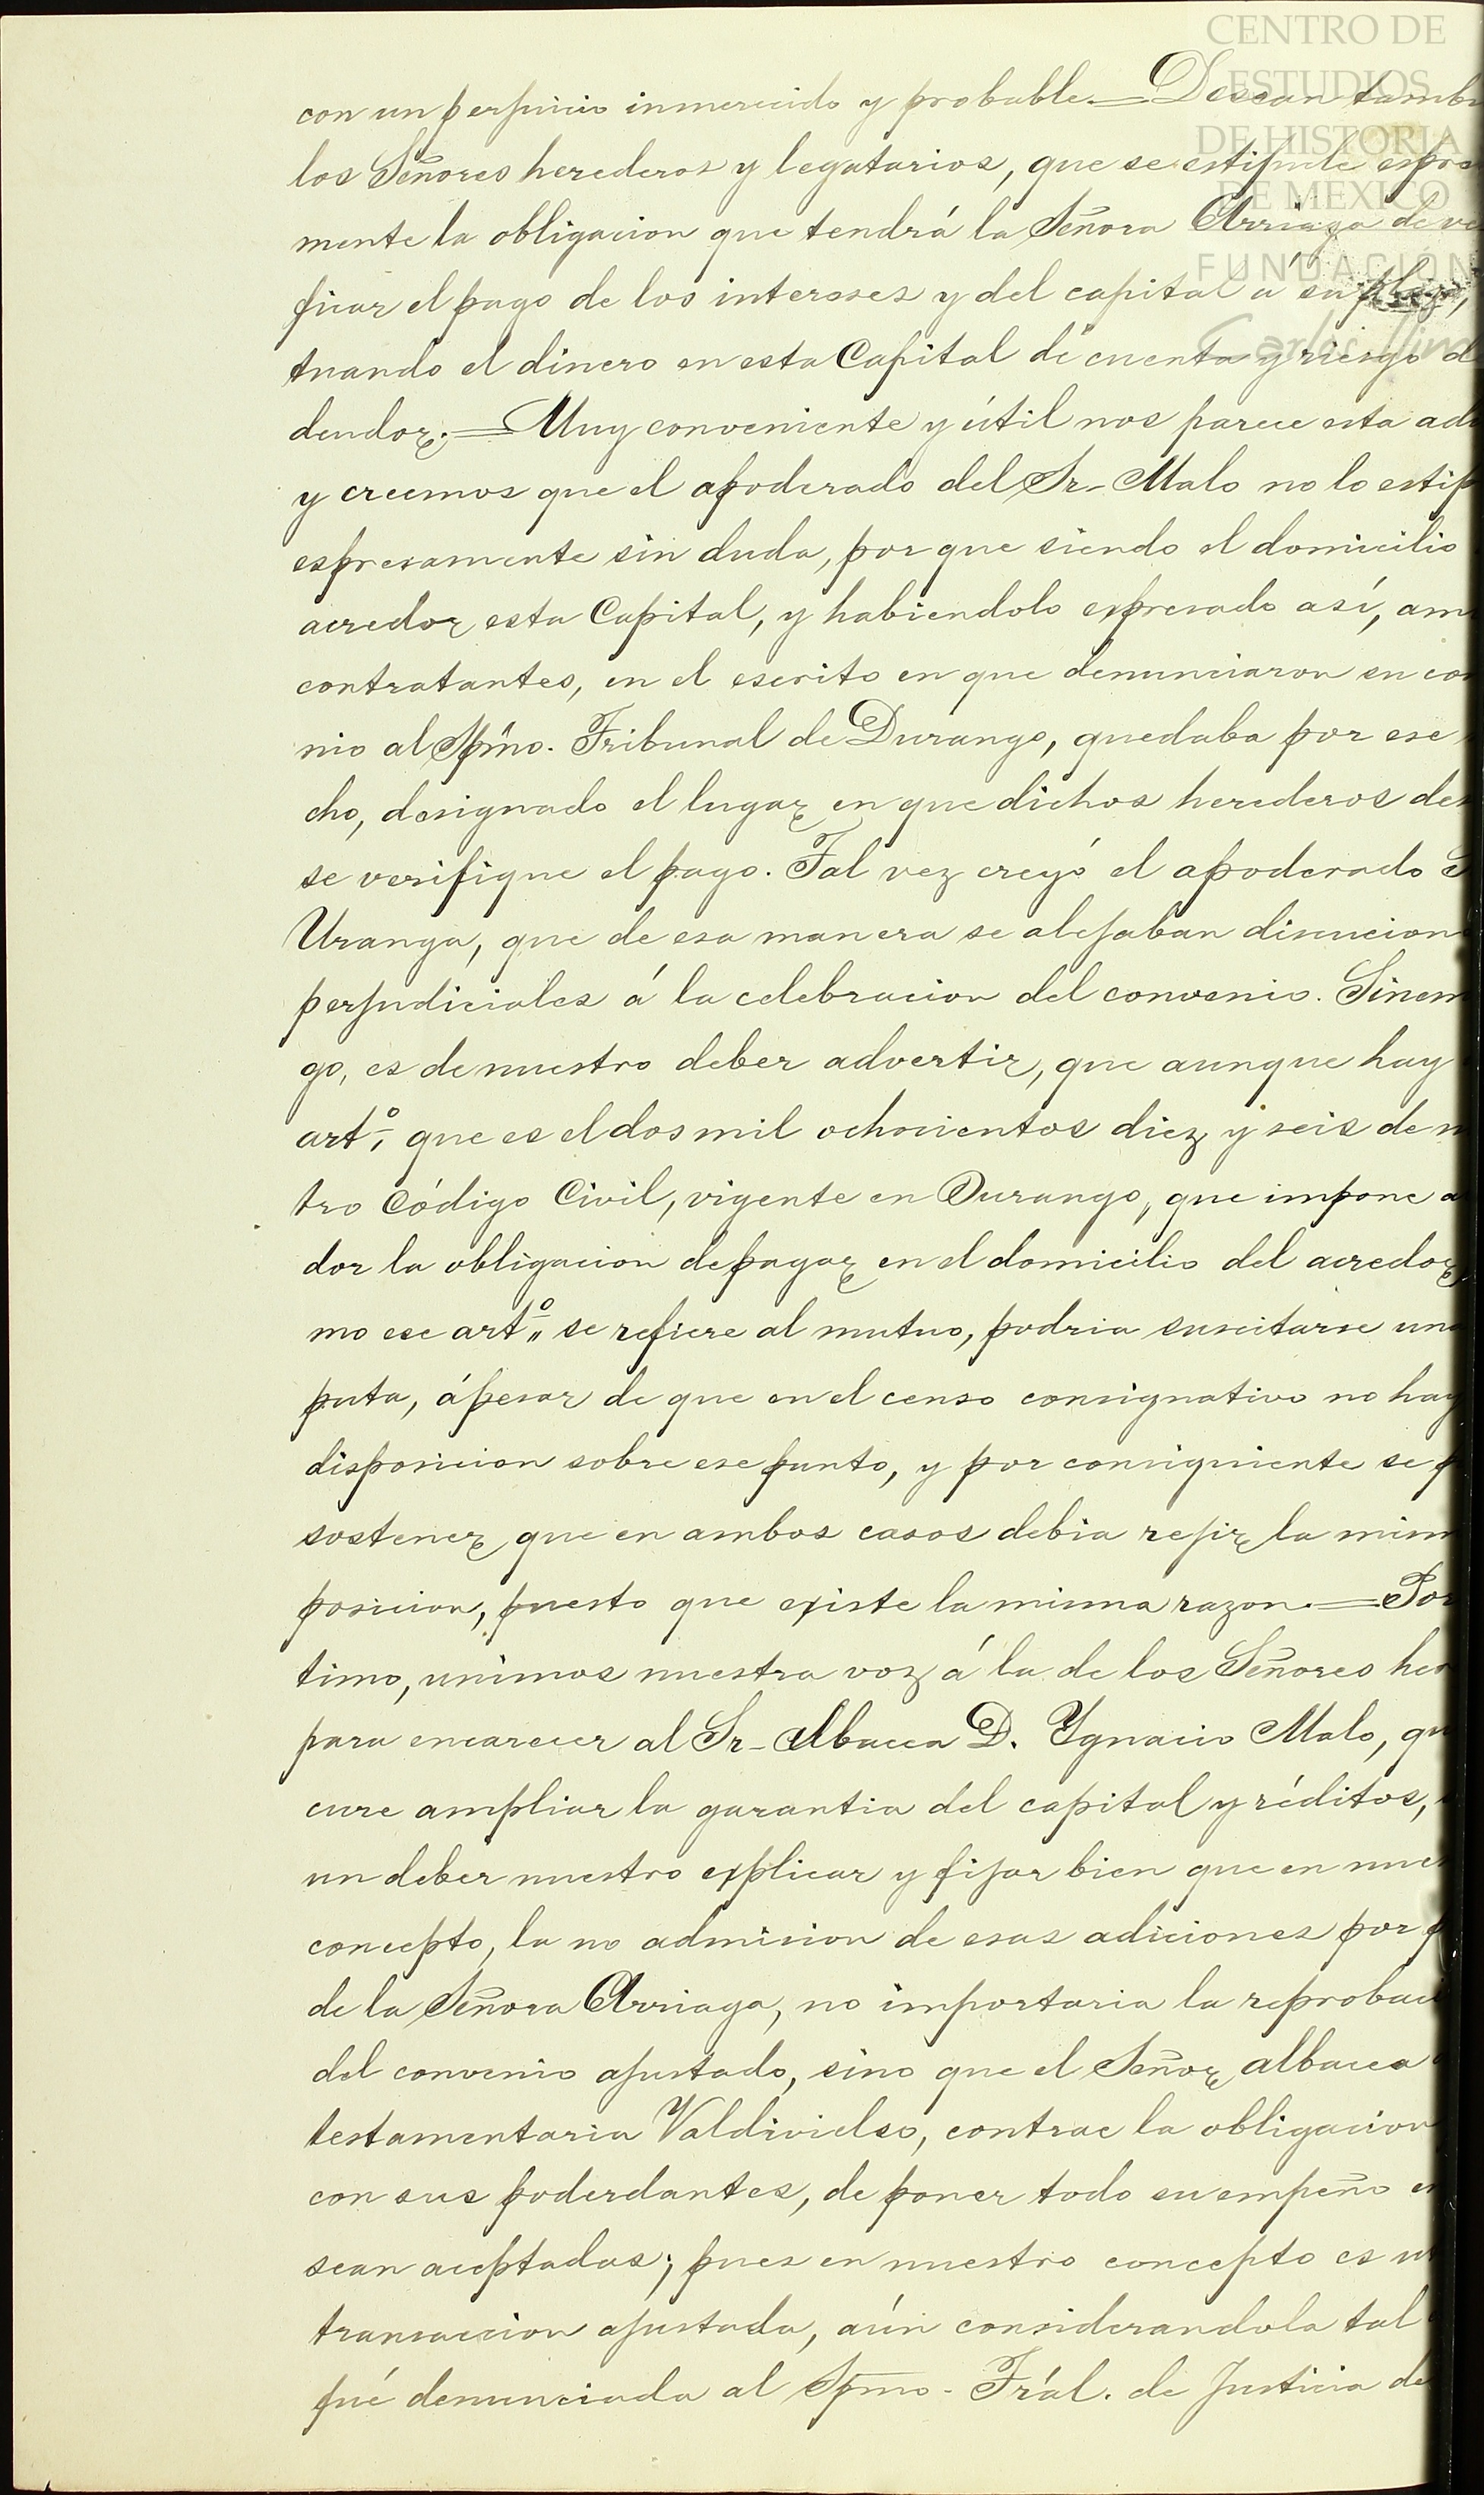 CENTRO DE
ESTUDIOS
DE HISTORIA
DE MEXICO
FUNDACIÓN
Carlos Slim
con un perjuicio inmerecido y probable.=Desean tambi
los Señores herederos y legatarios, que se estipule espre
mente la obligacion que tendrá la Señora Arriaga de ve
ficar el pago de los intereses y del capital á su plazo,
tuando el dinero en esta Capital de cuenta y riesgo d
deudor.=Muy conveniente y útil nos parece esta adi
y creemos que el apoderado del Sr. Malo no lo estip
espresamente sin duda, por que siendo el domicilio
acredor esta Capital, y habiendolo expresado así, am
contratantes, en el escrito en que denunciaron su con
nio al Spmo. Tribunal de Durango, quedaba por ese
cho, designado el lugar en que dichos herederos de
se verifique el pago. Tal vez creyó el apoderado S
Uranga, que de esa manera se alejaban discucion
perjudiciales á la celebracion del convenio. Sinem
go, es de nuestro deber advertir, que aunque hay
artº, que es el dos mil ochocientos diez y seis de n
tro Código Civil, vigente en Durango, que impone a
dor la obligacion de pagar en el domicilio del acredor,
mo ese artº. se refiere al mutuo, podria suscitarse una
puta, ápesar de que en el censo consignativo no hay
disposicion sobre ese punto, y por consiguiente se p
sostener que en ambos casos debia rejir la mism
posicion, puesto que existe la misma razon.=Por
timo, unimos nuestra voz á la de los Señores her
para encarecer al Sr. Albacea D. Ygnacio Malo, qu
cure ampliar la garantia del capital y réditos,
un deber nuestro explicar y fijar bien que en nues
concepto, la no admision de esas adiciones por p
de la Señora Arriaga, no importaria la reprobaci
del convenio ajustado, sino que el Señor albacea
testamentaria Valdivielso, contrae la obligacion
con sus poderdantes, de poner todo su empeño en
sean aceptadas; pues en nuestro concepto es ut
transaccion ajustada, aún considerandola tal
fué denunciada al Spmo. Trál. de Justicia de